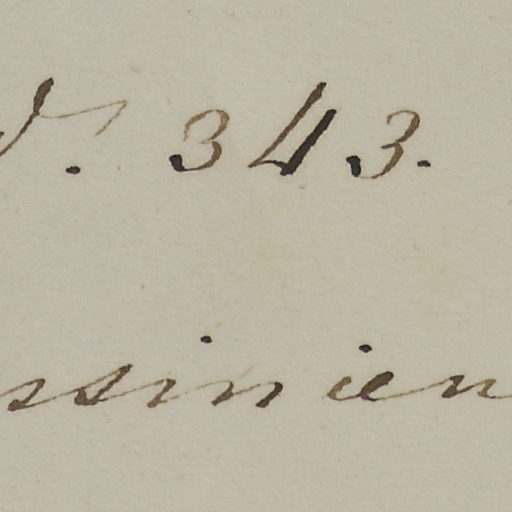 d. 343.
ssinien